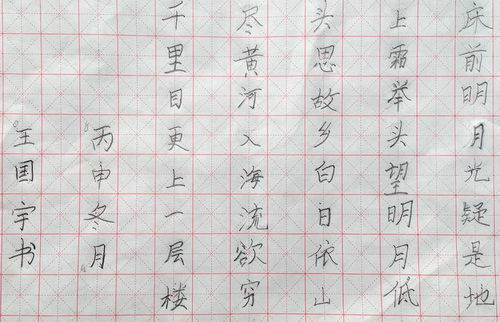 庆前明月光疑是地
上霜举头望明月低
头思故乡白日依山
尽黄河入海流欲穷
千里目更上一层楼
丙申冬月
王国宇书